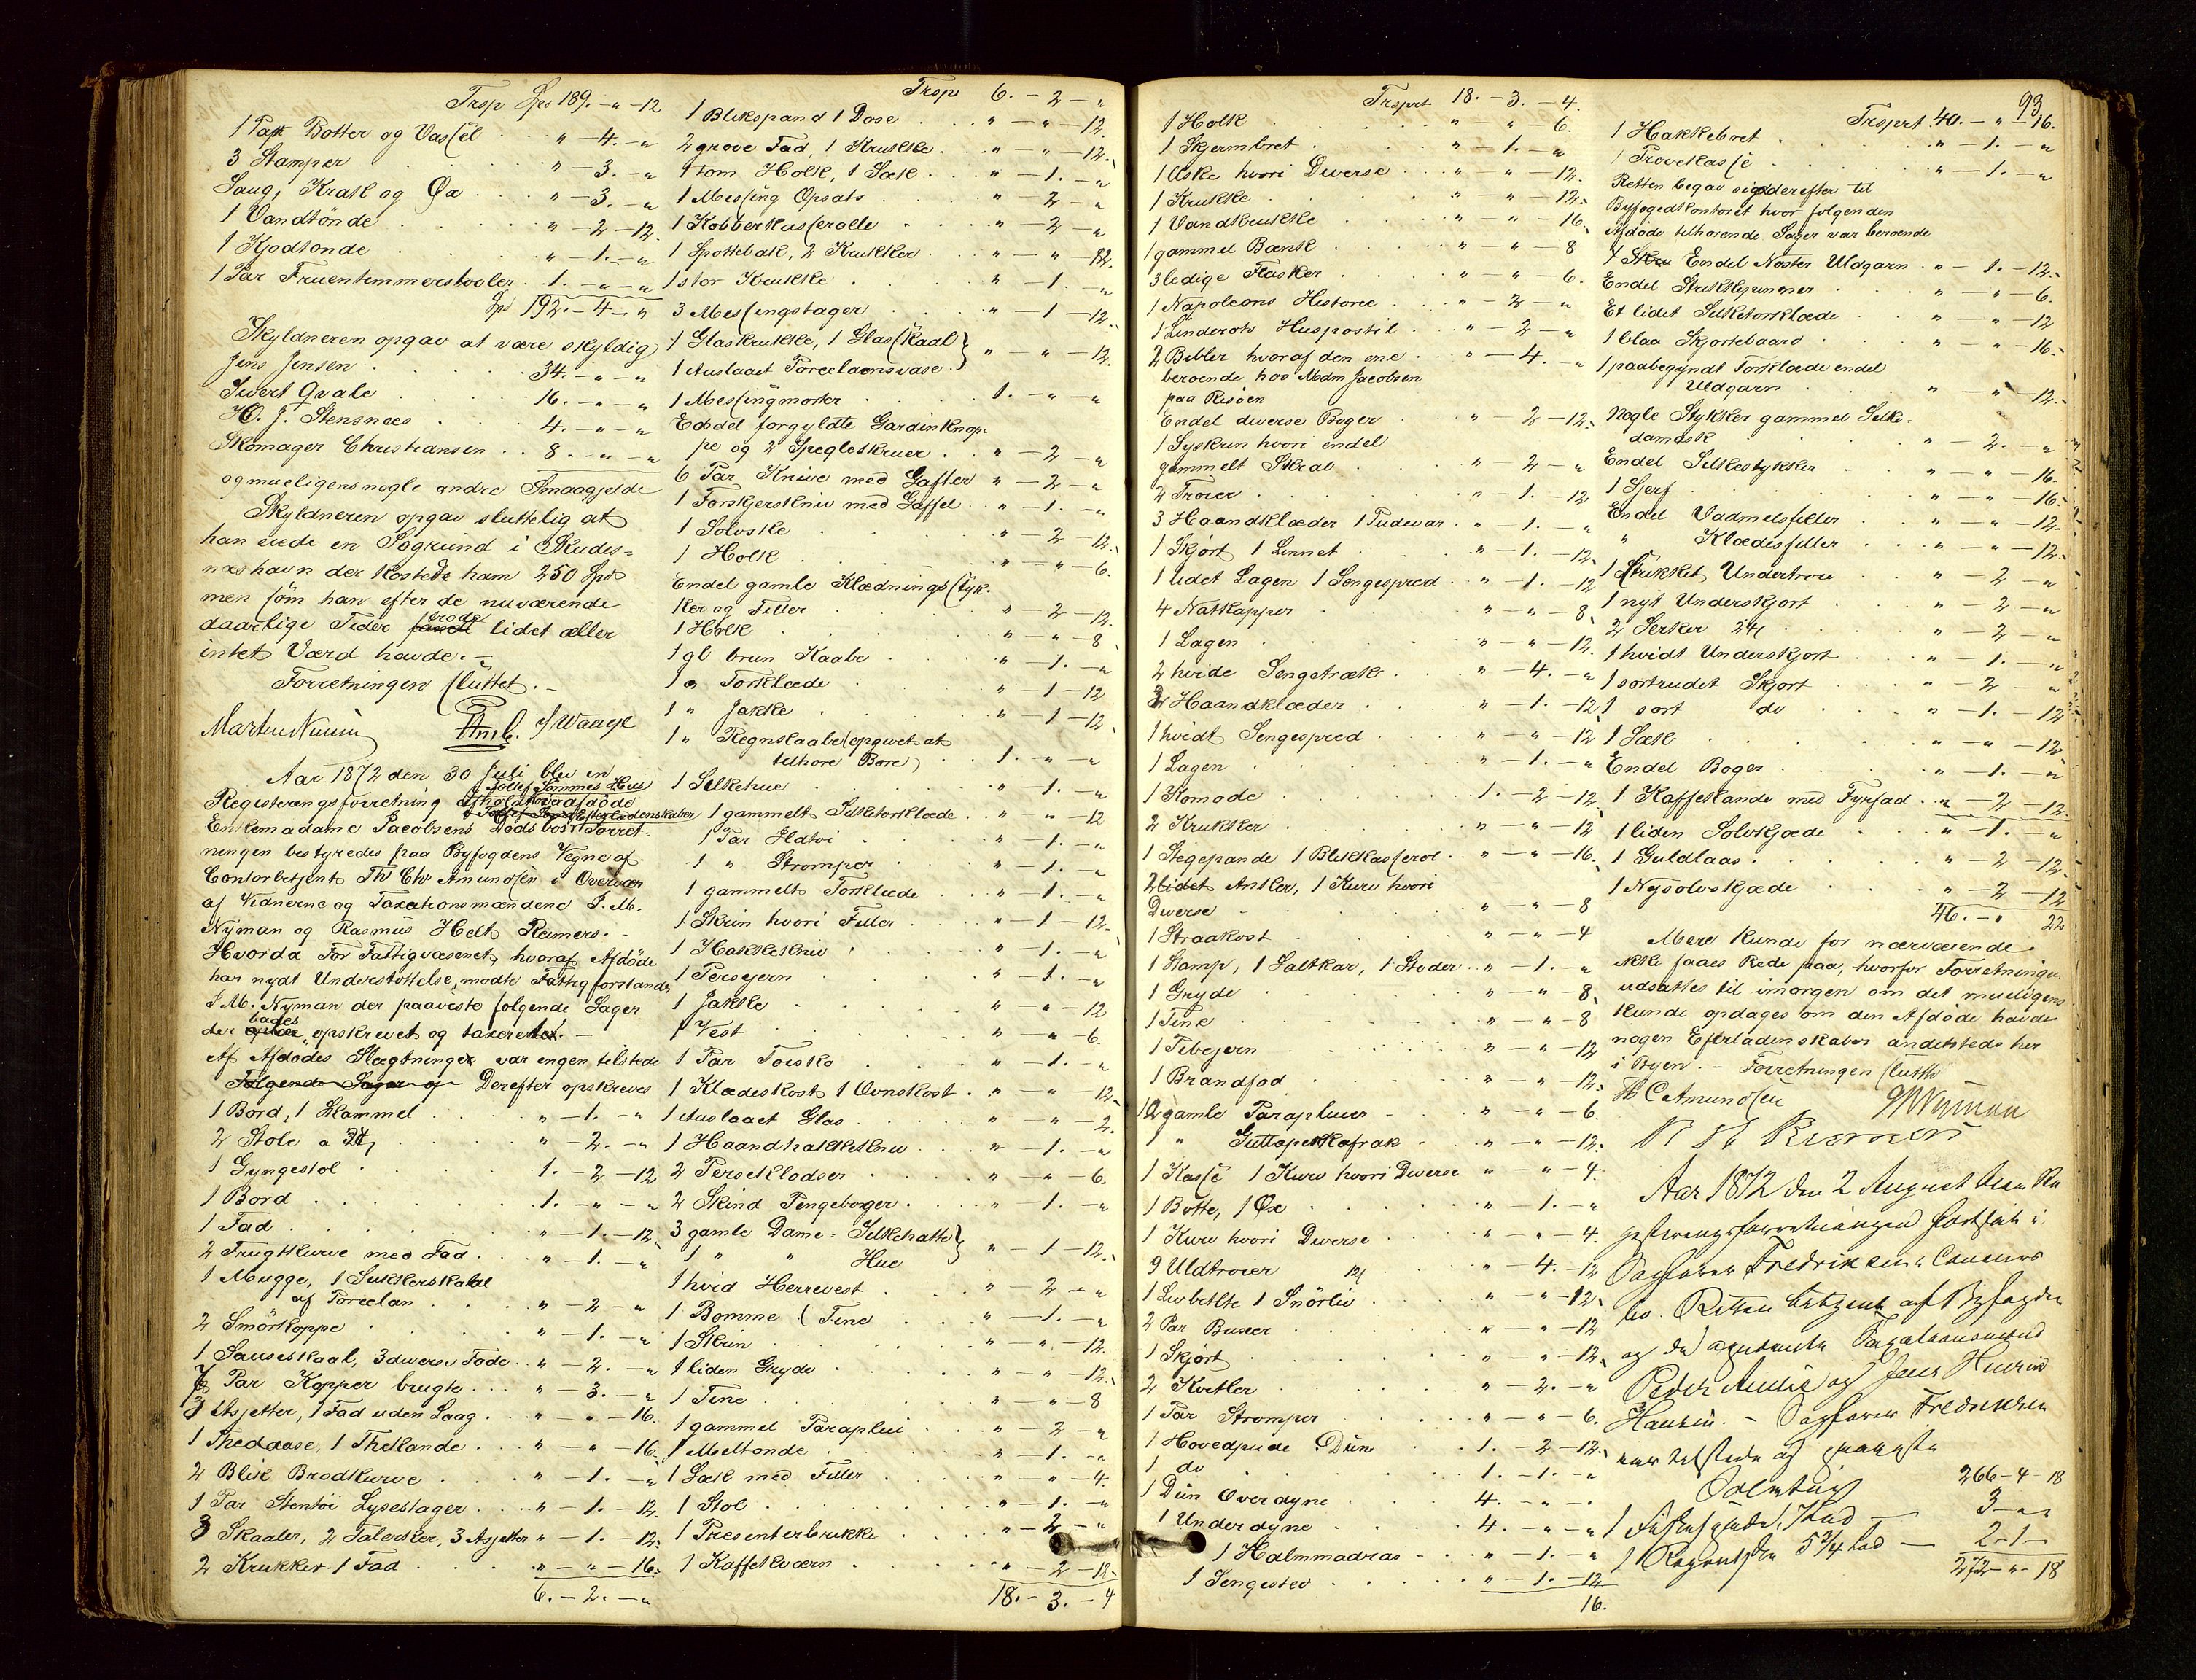 Trsp Spd 189. - " - 12
1 Par Botter og Vasſel . . " - 4. - "
3 Stamper . . " - 3. - "
Saug, Krak og Øx . . " - 3. - "
1 Vandtönde . . " - 2 - 12.
1 Kjodtonde . . " - 1. - "
1 Par Fruentimmerstovler . 1. - " - "
Spd 192. - 4 - "
Skyldneren opgav at være skyldig
Jens Jensen . . 34. - " - "
Sivert Qvale . . 16. - " - "
H. J. Stensnæs . . 4. - " - "
Skomager Christiansen . . 8. - " - "
og mueligens nogle andre Smaagjelde
Skyldneren opgav sluttelig at
han eiede en Søgrund i Skudes=
næshavn der kostede ham 250 Spd
men ſom han efter de nuværende
daarlige Tider troede lidet eller
intet Værd havde. -
Forretningen ſluttet. -
Marten Nuun J Waage
Aar 1872 den 30 Juli blev en
i Tollef Tommes Hus
Registerings forretning afholdt over afdöde
Enkemadame Jacobsens Dödsbo. Forret-
ningen bestyredes paa Byfogdens Vegne af
Contorbetjent Th Chr Amundſen i Overvær
af Vidnerne og Taxationsmændene J. M.
Nyman og Rasmus Helt Reimers. -
Hvorda For Fattigvæsenet, hvoraf Afdöde
har nydt Understöttelse, mödte Fattigforstander
J. M. Nyman der paaviste folgende Sager
der bades opskrevet og taxeret. -
Af Afdodes Slægtninger var engen tilstede
Folgende Sager og Derefter opskreves
1 Bord, 1 Skammel . . " - 1. - "
2 Stole a 24 . . " - 2. - "
1 Gyngestol . . 1. - 2 - 12
1 Bord . . 1. - " - "
1 Fad . . " - 1. - 12.
2 Frugtkurve med Fad . . " - 1. - "
1 Mugge, 1 Sukkerskaal
af Porcelan . . " - 2 - "
2 Smörkoppe . . " - 1. - "
1 Sauseskaal, 3 diverse Fade . . " - 2. - "
7 Par Kopper brugte . . " - 3. - "
3 Asjetter, 1 Fad uden Laag . . " - " - 16.
1 Thedaase, 1 Thekande . . " - " - 16.
2 Blik Brodkurve . . " - 1. - "
1 Par Stentöi Lysestager . . " - 1. - 12.
3 Skaaler, 2 Talerker, 3 Asjetter " - 1. - 12.
2 Krukker 1 Fad . . " - " - 16.
6. - 2. - "
Trsp 6. - 2 - "
1 Blikspand 1 Dose . . " - " - 12.
2 grove Fad, 1 Krukke . . " - " - 12.
1 tom Holk, 1 Sæk . . " - 1. - "
1 Mesſing Opsats . . " - 2 - "
1 Kobberkasſerolle . . " - 2 - "
1 Spottebak, 2 Krukker . . " - " - 12.
1 stor Krukke . . " - 1. - "
3 Mesſingstager . . " - 1 - 12.
1 Glaskrukke, 1 Glasſkaal }
1 Auslaaet Porcelaonsvase } " - " - 12.
1 Mesſingmorter . . 1. - " - "
Endel forgyldte Gardinknop-
pe og 2 Spegleskruer . . " - 2 - "
6 Par Knive med Gafler " - 2 - "
1 Forskjerskniv med Gaffel . . " - 1. - "
1 Solvske . . " - 2 - 12.
1 Holk . . " - " - 6.
Endel gamle Klædningsſtyk-
ker og Filler . . " - 2 - 12.
1 Holk . . " - " - 8
1 gl brun Kaabe . . " - 1. - "
1 " Torklæde . . " - 1 - 12
1 " Jakke . . " - 1 - 12.
1 " Regnkaabe (opgivet at
tilhore Bore) . . 1. - " - "
1 Silkehue . . " - 1. - "
1 gammelt Silketorklæde . . " - " - 12
1 Par Ildtoi . . " - 1. - "
1 " Stromper . . " - 1. - "
1 gammelt Torklæde . . " - 1. - "
1 Skrin hvori Filler . . " - 1 - 12.
1 Hakkekniv . . " - 1. - "
1 Persejern . . " - 1. - "
1 Jakke . . " - " - 12
1 Vest . . " - " - 6.
1 Par Toisko . . " - 1. - "
1 Klædeskost 1 Ovnskost . . " - " - 12.
1 Auslaaet Glas . . " - " - 2.
1 Haandhakkekniv . . " - 1. - "
2 Perseklodser . . " - " - 6.
2 Skind Pengeborger . . " - 1. - "
3 gamle Dame-Silkehatte }
1 " " Hue } " - 1 - 12.
1 hvid Herrevest . . " - 2 - "
1 Bomme (Tine . . " - 1. - "
1 Skrin . . " - " - 12.
1 liden Gryde . . " - " - 12.
1 Tine . . " - " - 8
1 gammel Paraplui . . " - 2 - "
1 Meltonde . . " - 1. - "
1 Sæk med Filler . . " - " - 4.
1 Stol . . " - 1. - "
1 Presenterbrukke . . " - 2 - "
1 Kaffekværn . . " - 2 - 12.
18. - 3. - 4
Trsprt 18. - 3. - 4.
1 Holk . . " - " - 6.
1 Skjermbret . . " - 1. - "
1 Æske hvori Diverse . . " - " - 12.
1 Krukke . . " - " - 12.
1 Vandkrukke . . " - " - 16.
1 gammel Bænk . . " - " - 8
3 ledige Flasker . . " - " - 6.
1 Napoleons Historie . . " - 2 - "
1 Linderots Huspostil . . " - 2 - "
2 Bibler hvoraf den ene . . " - 4. - "
beroende hos Mdm Jacobsen
paa Risöen
Endel diverse Boger . . " - 2 - 12.
1 Syskrin hvori endel
gammelt Skrab . . " - 2 - "
2 Troier . . " - 1. - 12
3 Haandklæder 1 Pudevar . . " - 1. - "
1 Skjort 1 Linnet . . " - 1. - 12.
1 lidet Lagen 1 Sengespred . . " - 1. - 12
4 Natkapper . . " - " - 8
1 Lagen . . " - " - 12.
2 hvide Sengetræk . . " - 4. - "
2 Haandklæder . . " - 1. - 12
1 hvidt Sengespred . . " - " - 12
1 Lagen . . " - 1. - "
1 Komode . . 1. - 2 - 12.
2 Krukker . . " - " - 12
1 Stegepande 1 Blikkasſerol . . " - " - 16.
2 lidet Antler, 1 Kurv hvori
Diverse . . " - " - 8
1 Straakost . . " - " - 4
1 Stamp, 1 Saltkar, 1 Stoder . . " - 1. - "
1 Gryde . . " - " - 8.
1 Tine . . " - " - 8
1 Pibejern . . " - " - 12
1 Brandfad . . " - " - 12.
2 gamle Parapluier . . " - " - 6.
1 " Guttaperkafrak . . " - " - 12.
1 Kasſe 1 Kurv hvori Diverse " - " - 4.
1 Botte, 1 Øxe . . " - 1. - "
1 Kurv hvori Diverse . . " - " - 4.
9 Uldtroier 12 . . " - 4. - 12
1 Livbelte 1 Snörliv . . " - " - 12.
2 Par Buxer . . " - " - 12
1 Skjort . . " - " - 12.
2 Kvitler . . " - 2. - "
1 Par Stromper . . " - " - 6.
1 Hovedpude Dün . . 1. - 2 - 12.
1 do . . 1. - 1. - "
1 Dün Overdyne . . 4. - " - "
1 Underdyne . . 4. - " - "
1 Halmmadras . . " - 1. - "
1 Sengested . . " - 1. - 12
16.
93
Trsprt 40. - " - 16.
1 Hakkebret . . " - 1. - "
1 Provekasſe . . " - 1. - "
Retten begav sig derefter til
Byfogedkontoret hvor folgen den
Afdöde tilhorende Sager var beroende
Endel Noster Uldgarn . . " - 1. - 12.
Endel Strikkepinner . . " - " - 6.
Et lidet Silketorklæde . . " - " - 12
1 blaa Skjortebaard . . " - " - 16.
1 paabegyndt Torklæde endel
Uldgarn . . " - " - 12.
Nogle Stykker gammel Silke-
damask . . " - 2. - "
Endel Silkestykker . . " - " - 16.
1 Sjerf . . " - " - 16.
Endel Vadmelsfiller . . " - " - 12.
" Klædesfiller . . " - " - 12.
1 Strikket Undertroie . . " - 2 - "
1 nyt Underskjort . . " - 2 - "
2 Serker 24 . . " - 2 - "
1 hvidt Underskjort . . " - 1. - "
1 sortrudet Skjort . . " - 2 - "
1 sort do . . " - 1. - 12
1 Sæk . . " - " - 12
Endel Boger . . " - 1. - "
1 Kaffekande med Fyrfad . . " - 2 - 12.
1 liden Solvkjæde . . " - 1. - "
1 Guldlaas . . " - 2 - 12.
1 Nysolvskjæde . . " - 2 - 12
46. - " 22
Mere kunde for nærværende
ikke faaes Rede paa, hvorfor Forretningen
udsattes til imorgen om det mueligens
kunde opdages om den Afdöde havde
nogen Efterladenskaber andetsteds her
i Byen. - Forretningen ſluttet
Th C Amundſen JM Nyman
R H Reimers
Aar 1872 den 2 August blev Re
gistreringsforretningen fortsat i
Sagförer Fredriksens Concurs
bo. Retten betjent af Byfogden
og de opnævnte Taxationsmænd
Peder Amlie og Jens Henrik
Hansen. - Sagförer Fredriksen
var tilstede og paaviste
Solvtøi 266 - 4 - 18
1 Fiskespade, 7 Lod — 3 - " - "
1 Ragoutske 5 3/4 Lod — 2 - 1 -
272 - " - 18